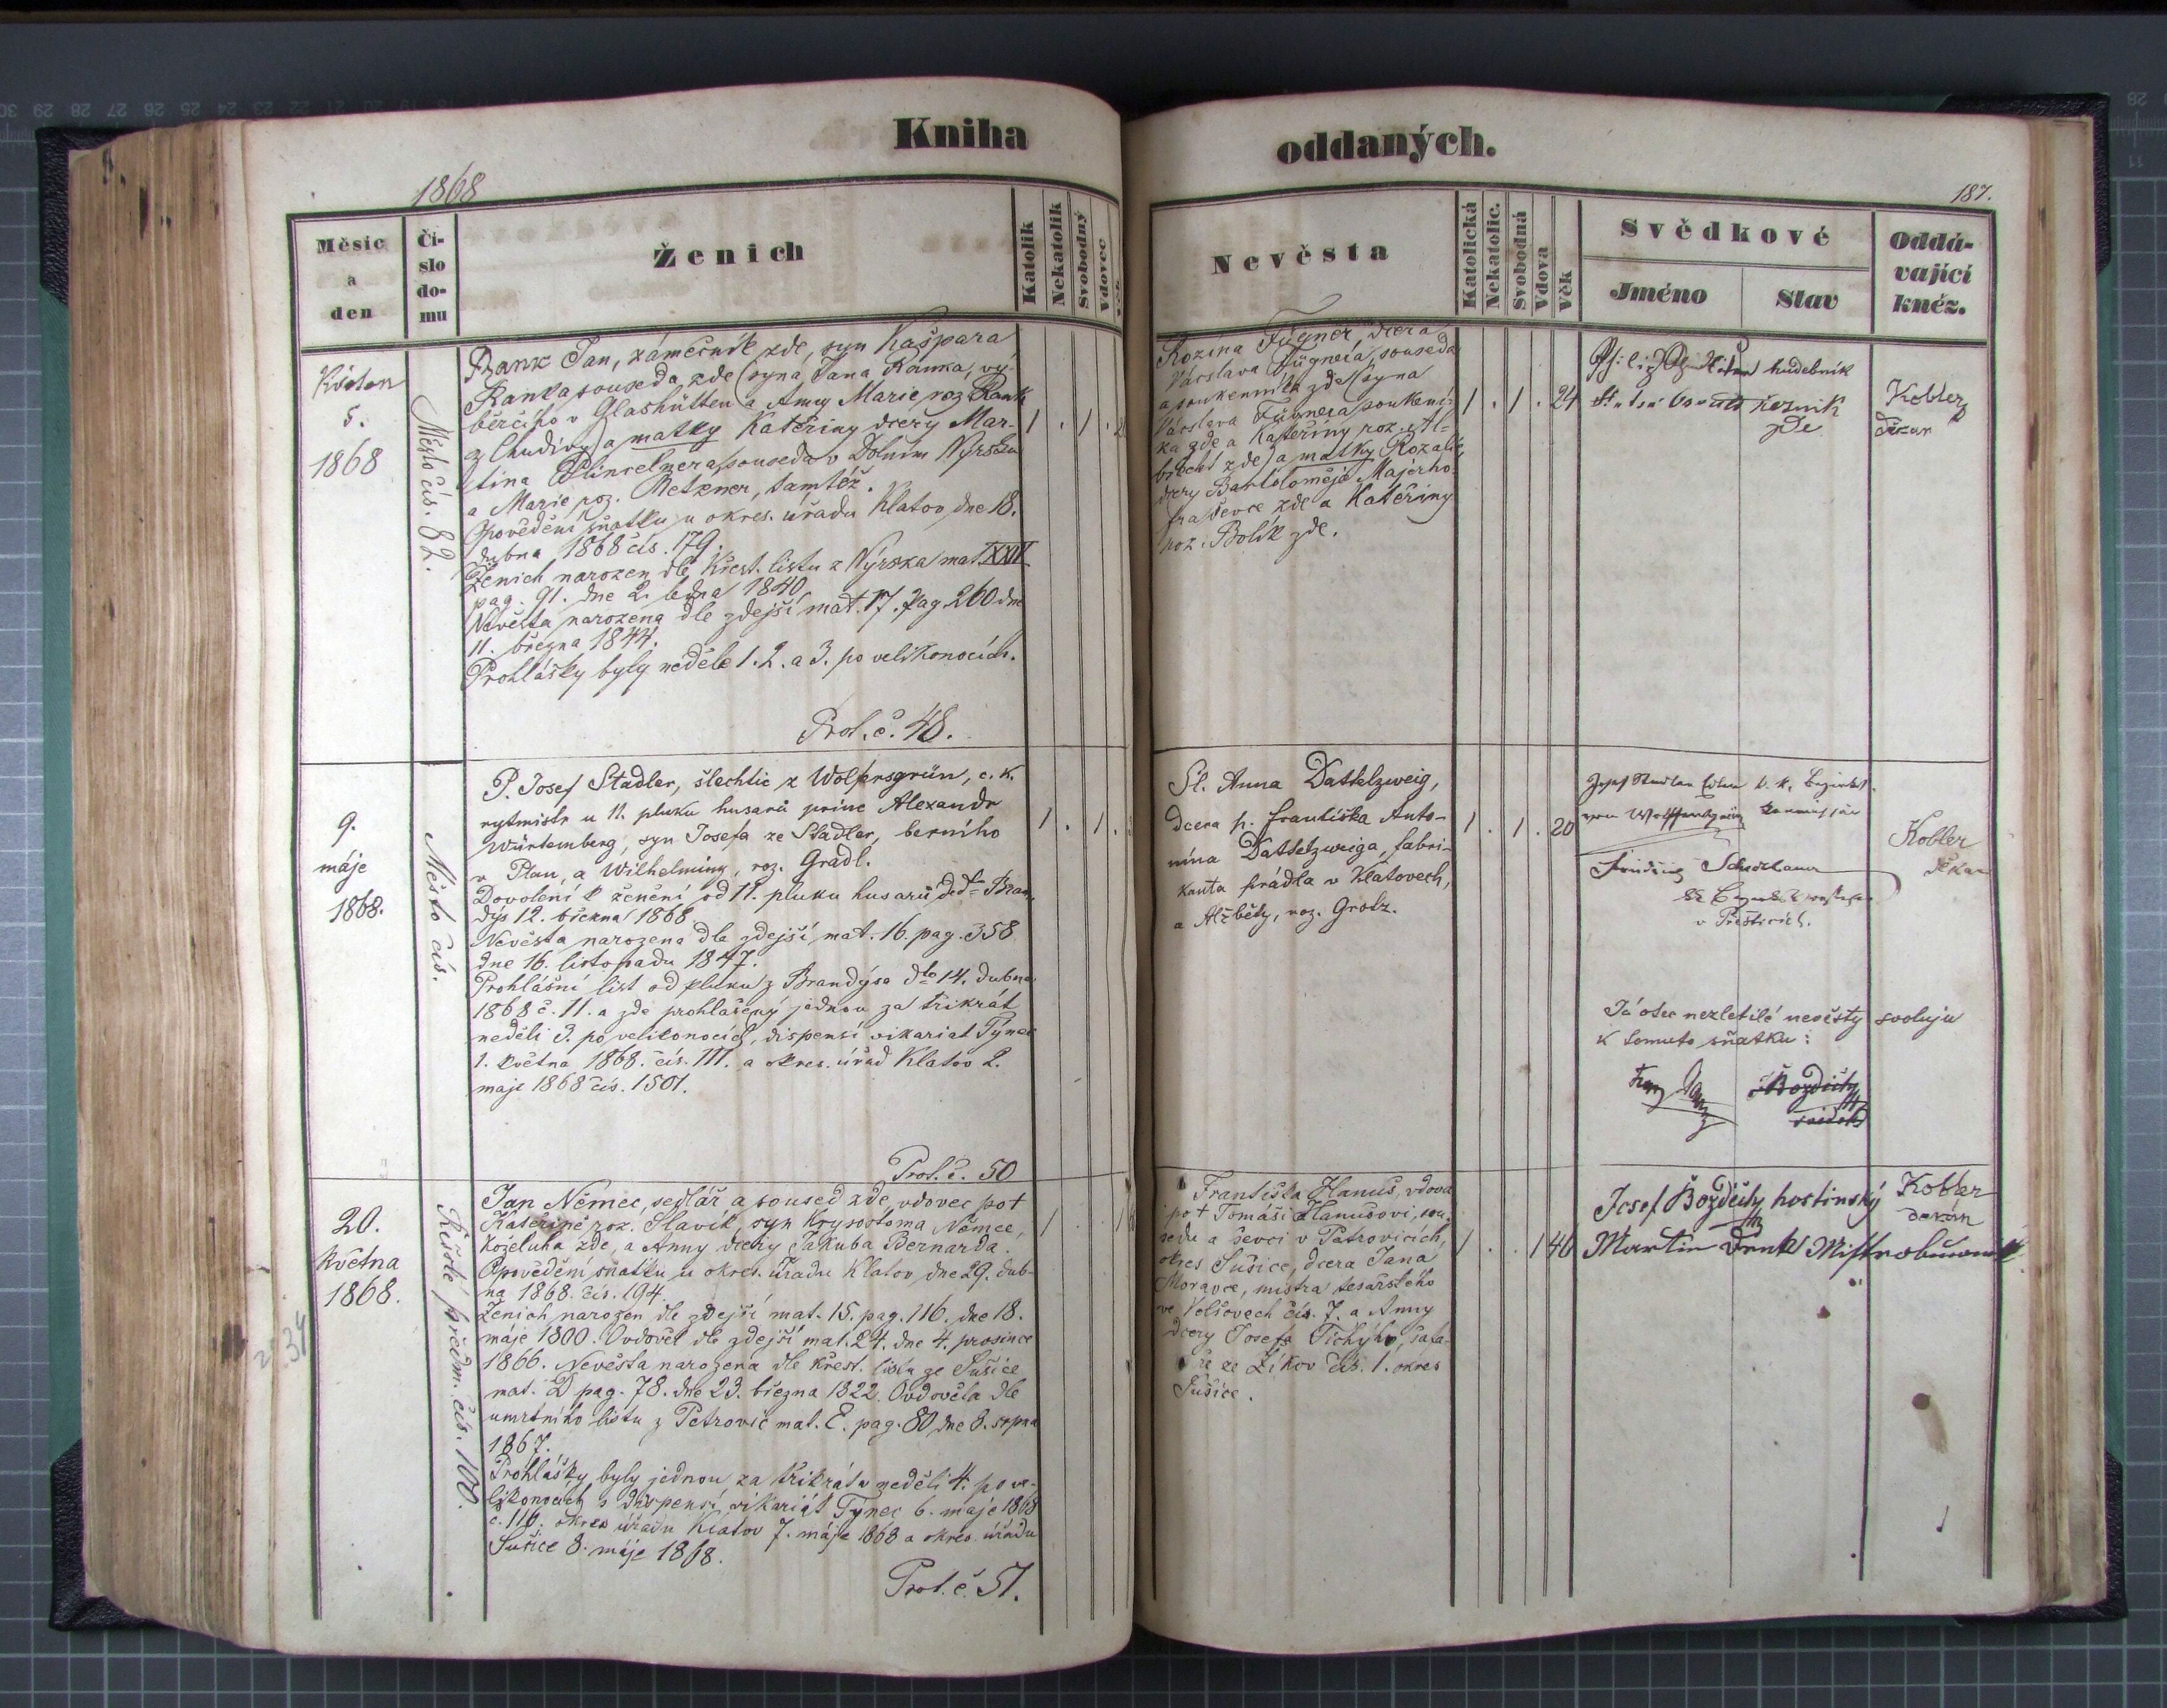 Kniha
oddaných.
1868
187.
Měsíc a den
Číslo domu
Ženich
Katolík
Nekatolík
Svobodný
Vdovec
Nevěsta
Katolická
Nekatolic.
Svobodná
Vdova
Věk
Svědkové
Jméno
Stav
Oddávající kněz.
Květen
5.
1868
Město čís. 82.
Rank Jan, zámečník zde, syn Kašpara
Ranka souseda zde (syna Jana Ranka, vý-
běrčího v Glashütten a Anny Marie roz. Rank
z Chudiny) a matky Kateřiny dcery Mar-
tina souseda v Dolním Nýrsku
a Marie roz. Retzner, tamtéž.
Opovědění sňatku u okres. úřadu Klatov dne 18.
dubna 1868 čís. 179.
Ženich narozen dle křest. listu z Nýrska mat.
pag. 91. dne 2. ledna 1840
Nevěsta narozena dle zdejší mat. 17. pag. 260 dne
11. března 1844.
Prohlášky byly neděle 1. 2. a 3. po velikonocích.
Prot. č. 48.
1 . 1 .
Rozina Fügner, dcera
Václava Fügnera, souseda
a soukenníka zde (syna
Václava Fügnera soukeni-
ka zde a Kateřiny roz. Al-
brecht zde) a matky Rozalie
dcery Bartoloměje Majerho-
fra ševce zde a Kateřiny
roz. Bolik zde.
1 . 1 . 24
hudebník
řezník
zde
Kobler
děkan
9.
máje
1868.
Město čís.
P. Josef Stadler, šlechtic z Wolfersgrün, c. k.
rytmistr u 11. pluku husarů princ Alexandr
Würtemberg, syn Josefa ze Stadler, berního
v Plan, a Wilhelminy, roz. Gradl.
Dovolení k ženění od 11. pluku husarů ddto Bran-
dýs 12. března 1868.
Nevěsta narozena dle zdejší mat. 16. pag. 358
dne 16. listopadu 1847.
Prohlášní list od pluku z Brandýsa dto 14. dubna
1868 č. 11. a zde prohlášený jednou za třikrát
neděli 3. po velikonocích, dispensí vikariat Týnec
1. května 1868. čís. 111. a okres. úřad Klatov 2.
maje 1868 čís. 1501.
Prot. č. 50
1 . 1 .
Sl. Anna Dattelzweig,
dcera p. Františka Anto-
nína Dattelzweiga, fabri-
kanta prádla v Klatovech,
a Alžběty, roz. Grotz.
1 . 1 . 20
Josef Stadler Edler k. k. Bezirks
von Wolfersgrün
v Přešticích.
Kobler
děkan
Já otec nezletilé nevěsty svoluju
k tomuto sňatku:
Božděchy
svědek
20.
května
1868.
předm. čís. 100.
Jan Němec, sedlář a soused zde, vdovec po †
Kateřině roz. Slavík, syn Krysostoma Němce,
koželuha zde, a Anny dcery Jakuba Bernarda.
Opovědění sňatku u okres. úřadu Klatov dne 29. dub-
na 1868. čís. 194.
Ženich narozen dle zdejší mat. 15. pag. 116. dne 18.
máje 1800. Ovdověl dle zdejší mat. 24. dne 4. prosince
1866. Nevěsta narozena dle křest. listu ze Sušice
mat. D pag. 78. dne 23. března 1822. Ovdověla dle
umrtního listu z Petrovic mat. E. pag. 80 dne 8. srpna
1867.
Prohlášky byly jednou za třikráte neděli 4. po ve-
likonocích s dispensí vikariát Týnec 6. maje 1868
č. 116. okres úřadu Klatov 7. máje 1868 a okres. úřadu
Sušice 8. máje 1868.
Prot. č. 51.
Františka Hanuš, vdova
po † Tomáši Hanušovi, sou-
sedu a ševci v Petrovicích,
okres Sušice, dcera Jana
Moravce, mistra tesařského
ve Volšovech čís. 7. a Anny
dcery Josefa Tichýho, šafá-
ře ze Žikov čís. 1. okres
Sušice.
1 . . 1 46
Josef Božděchy hostinský
Martin Denk
Kobler
děkan